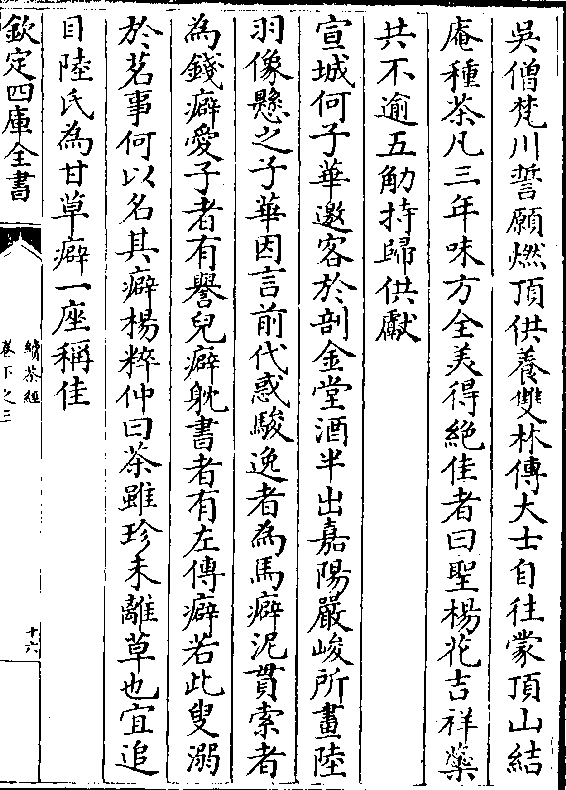 吳僧梵川誓願燃頂供養雙林傅大士自往蒙頂山結
庵種茶凡三年味方全美得絶佳者曰聖楊花吉祥蘂
共不逾五觔持歸供獻
宣城何子華邀客於剖金堂酒半出嘉陽嚴峻所畫陸
羽像懸之子華因言前代惑駿逸者為馬癖泥貫索者
為錢癖愛子者有譽兒癖躭書者有左傳癖若此叟溺
於茗事何以名其癖楊粹仲曰茶雖珍未離草也宜追
目陸氏為甘草癖一座稱佳
欽定四庫全書
續茶經
卷下之三
十六